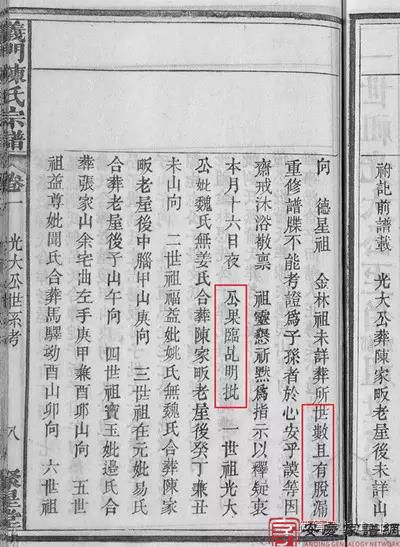 附記前譜載 光大公葬陳家畈老屋後未詳山
向 德星祖 金林祖未詳葬所世數且有脫漏
重修譜牒不能考證爲子孫者於心安乎謨等因
齋戒沐浴敬禀 祖靈懇祈黙爲指示以釋疑衷
本月十六日夜 公果臨乩明批 一世祖光大
公妣魏氏無姜氏合葬陳家畈老屋後癸丁兼丑
未山向 二世祖福益妣姚氏無魏氏合葬陳家
畈老屋後中腦甲山庚向 三世祖在元妣易氏
合葬老屋後子山午向 四世祖寶玉妣過氏合
葬張家山余宅曲左手庚甲兼酉卯山向 五世
祖益尊妣聞氏合葬馬驛㘭酉山卯向 六世祖
義門陳氏宗譜 卷一 光大公世系考 八 聚星堂
安慶家譜網
ANQING GENEALOGY NETWORK